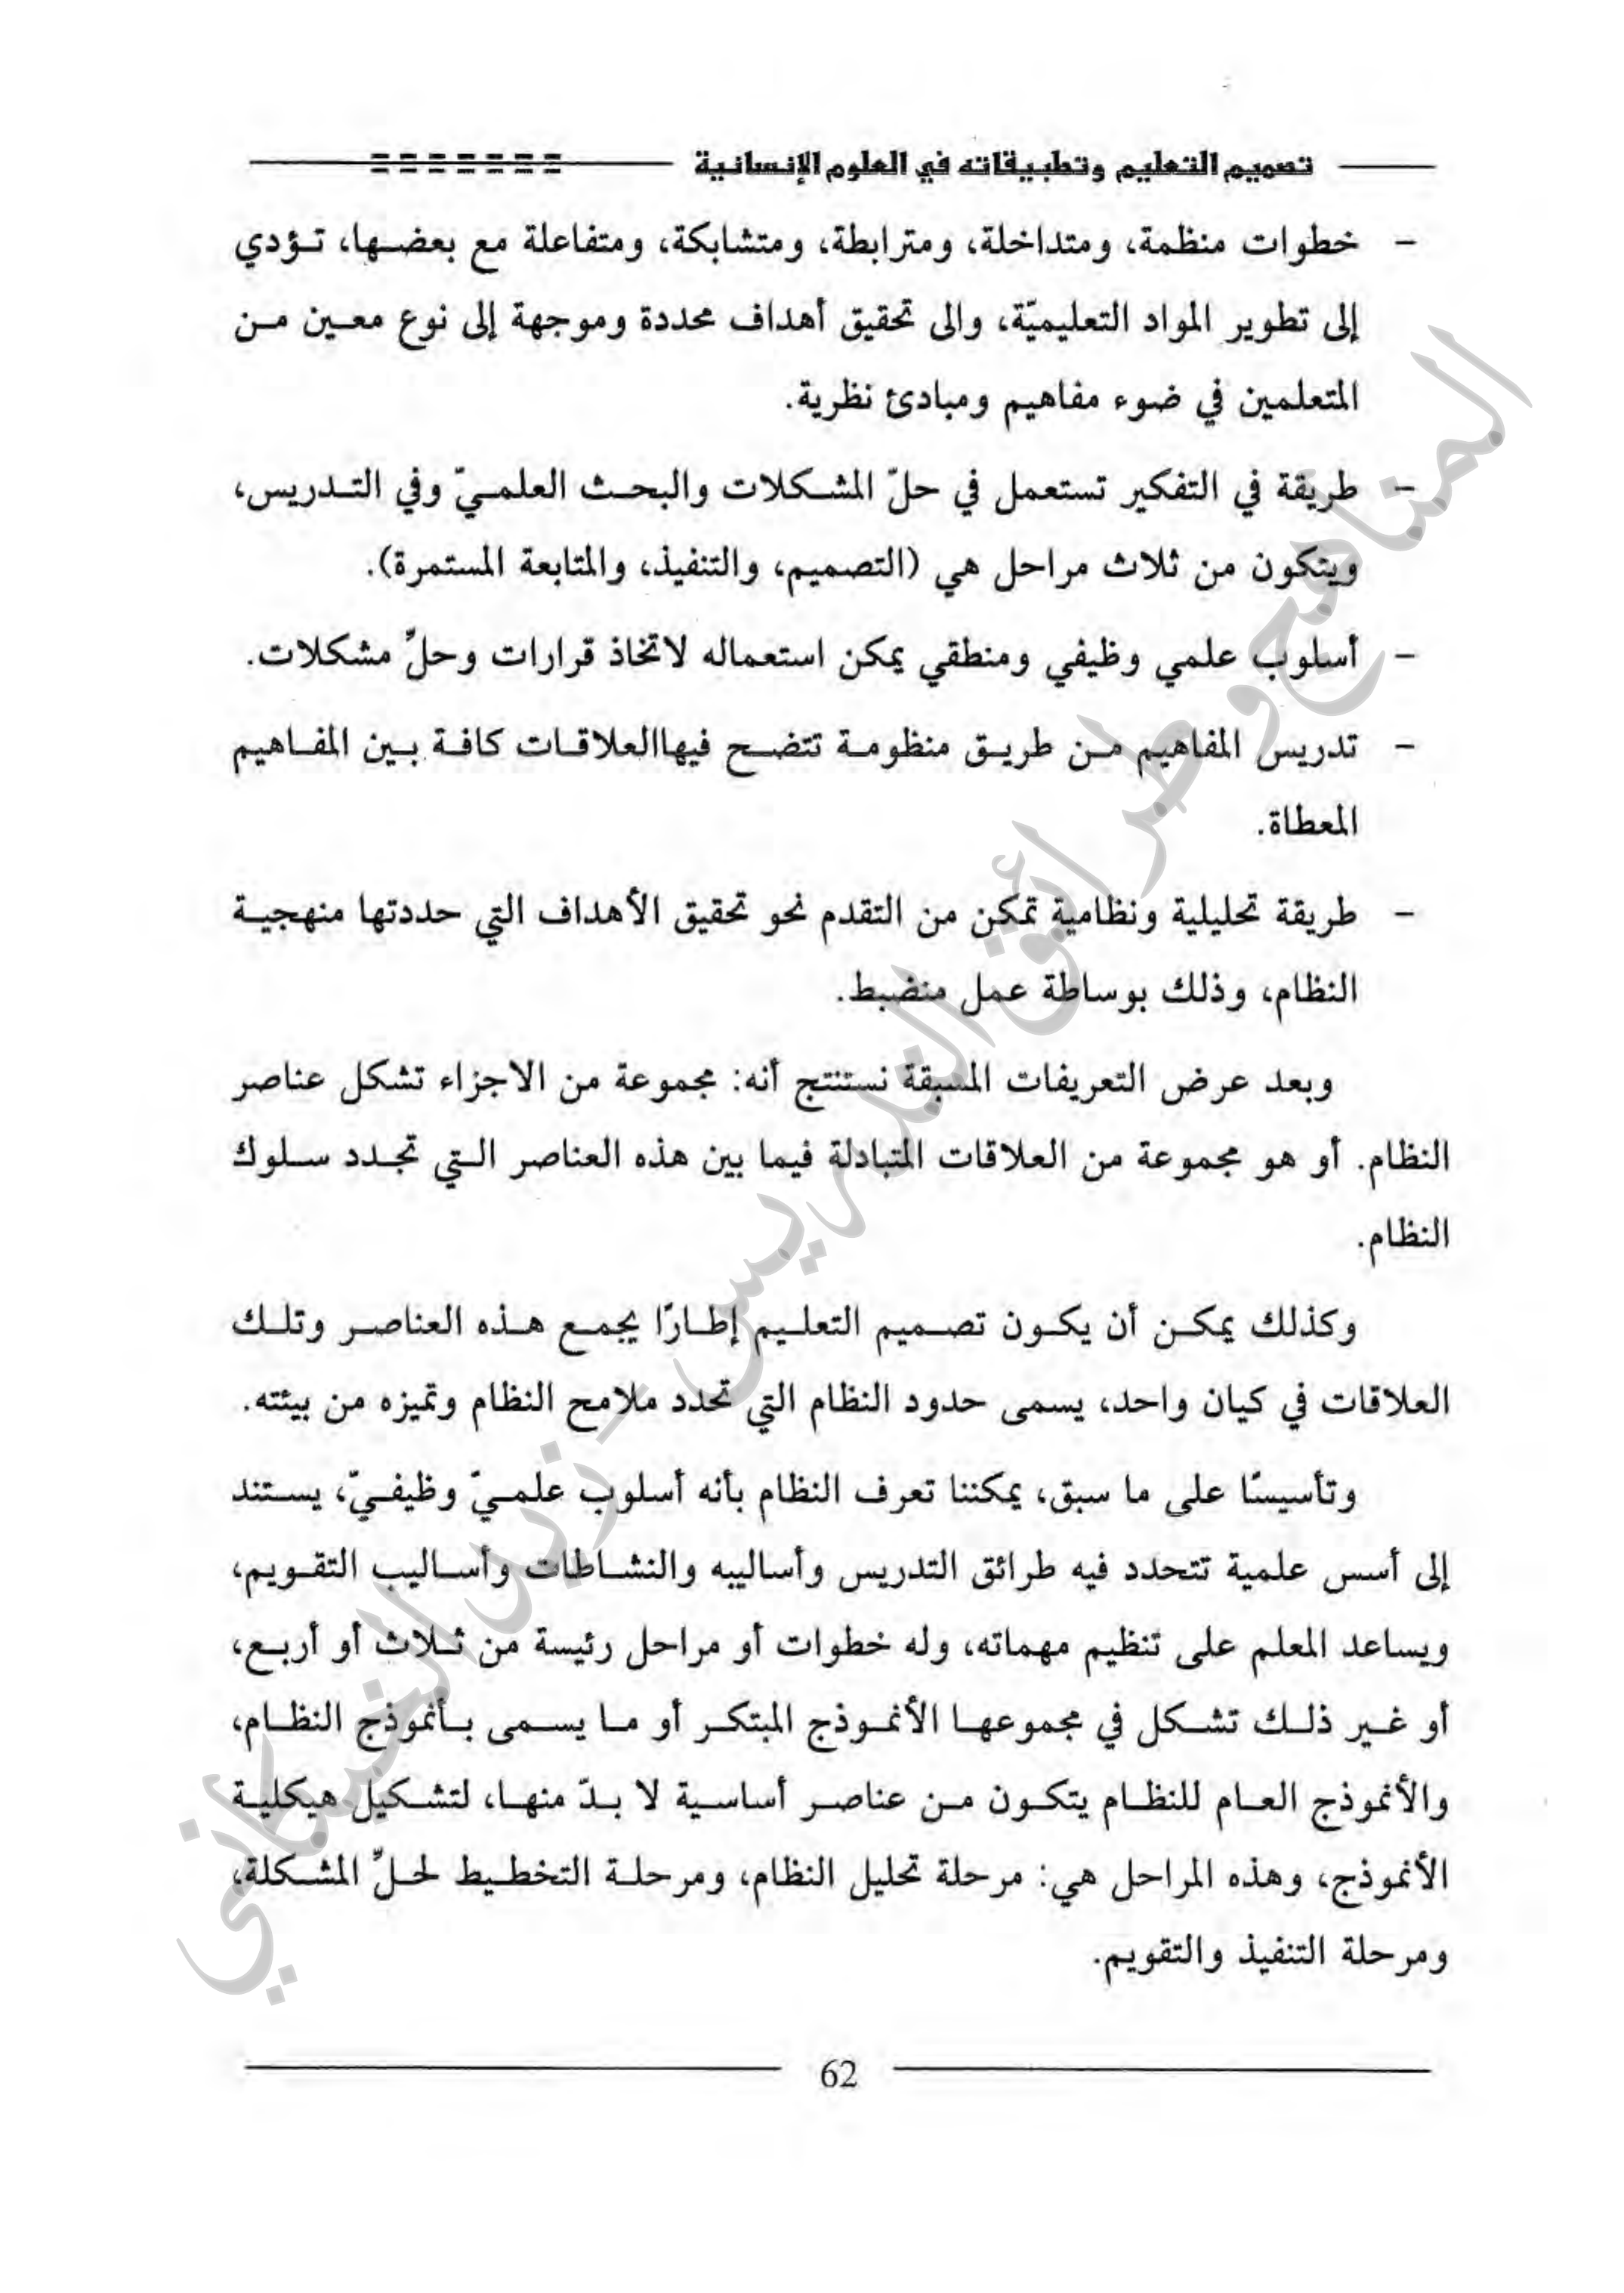 تصميم التعليم وتطبيقاته في العلوم الإنسانية
- خطوات منظمة، ومتداخلة، ومترابطة، ومتشابكة، ومتفاعلة مع بعضها، تؤدي
إلى تطوير المواد التعليميّة، والى تحقيق أهداف محددة وموجهة إلى نوع معين من
المتعلمين في ضوء مفاهيم ومبادئ نظرية.
- طريقة في التفكير تستعمل في حلّ المشكلات والبحث العلميّ وفي التدريس،
ويتكون من ثلاث مراحل هي (التصميم، والتنفيذ، والمتابعة المستمرة).
- أسلوب علمي وظيفي ومنطقي يمكن استعماله لاتخاذ قرارات وحلِّ مشكلات.
- تدريس المفاهيم من طريق منظومة تتضح فيهاالعلاقات كافة بين المفاهيم
المعطاة.
- طريقة تحليلية ونظامية تمكن من التقدم نحو تحقيق الأهداف التي حددتها منهجية
النظام، وذلك بوساطة عمل منضبط.
وبعد عرض التعريفات المسبقة نستنتج أنه: مجموعة من الاجزاء تشكل عناصر
النظام. أو هو مجموعة من العلاقات المتبادلة فيما بين هذه العناصر التي تجدد سلوك
النظام.
وكذلك يمكن أن يكون تصميم التعليم إطارًا يجمع هذه العناصر وتلك
العلاقات في كيان واحد، يسمى حدود النظام التي تحدد ملامح النظام وتميزه من بيئته.
وتأسيسًا على ما سبق، يمكننا تعرف النظام بأنه أسلوب علميّ وظيفيّ، يستند
إلى أسس علمية تتحدد فيه طرائق التدريس وأساليبه والنشاطات وأساليب التقويم،
ويساعد المعلم على تنظيم مهماته، وله خطوات أو مراحل رئيسة من ثلاث أو أربع،
أو غير ذلك تشكل في مجموعها الأنموذج المبتكر أو ما يسمى بأنموذج النظام،
والأنموذج العام للنظام يتكون من عناصر أساسية لا بدّ منها، لتشكيل هيكلية
الأنموذج، وهذه المراحل هي: مرحلة تحليل النظام، ومرحلة التخطيط لحلِّ المشكلة،
ومرحلة التنفيذ والتقويم.
62
المناهج وطرائق التدريس - زيد الخيكاني